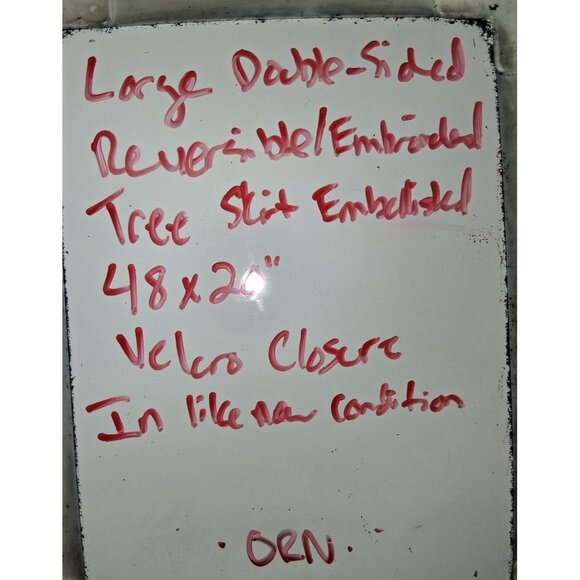 Large Double-Sided
Reversible/Embroidered
Tree Skirt Embellished
48 x 20"
Velcro Closure
In like new condition
· ORN ·